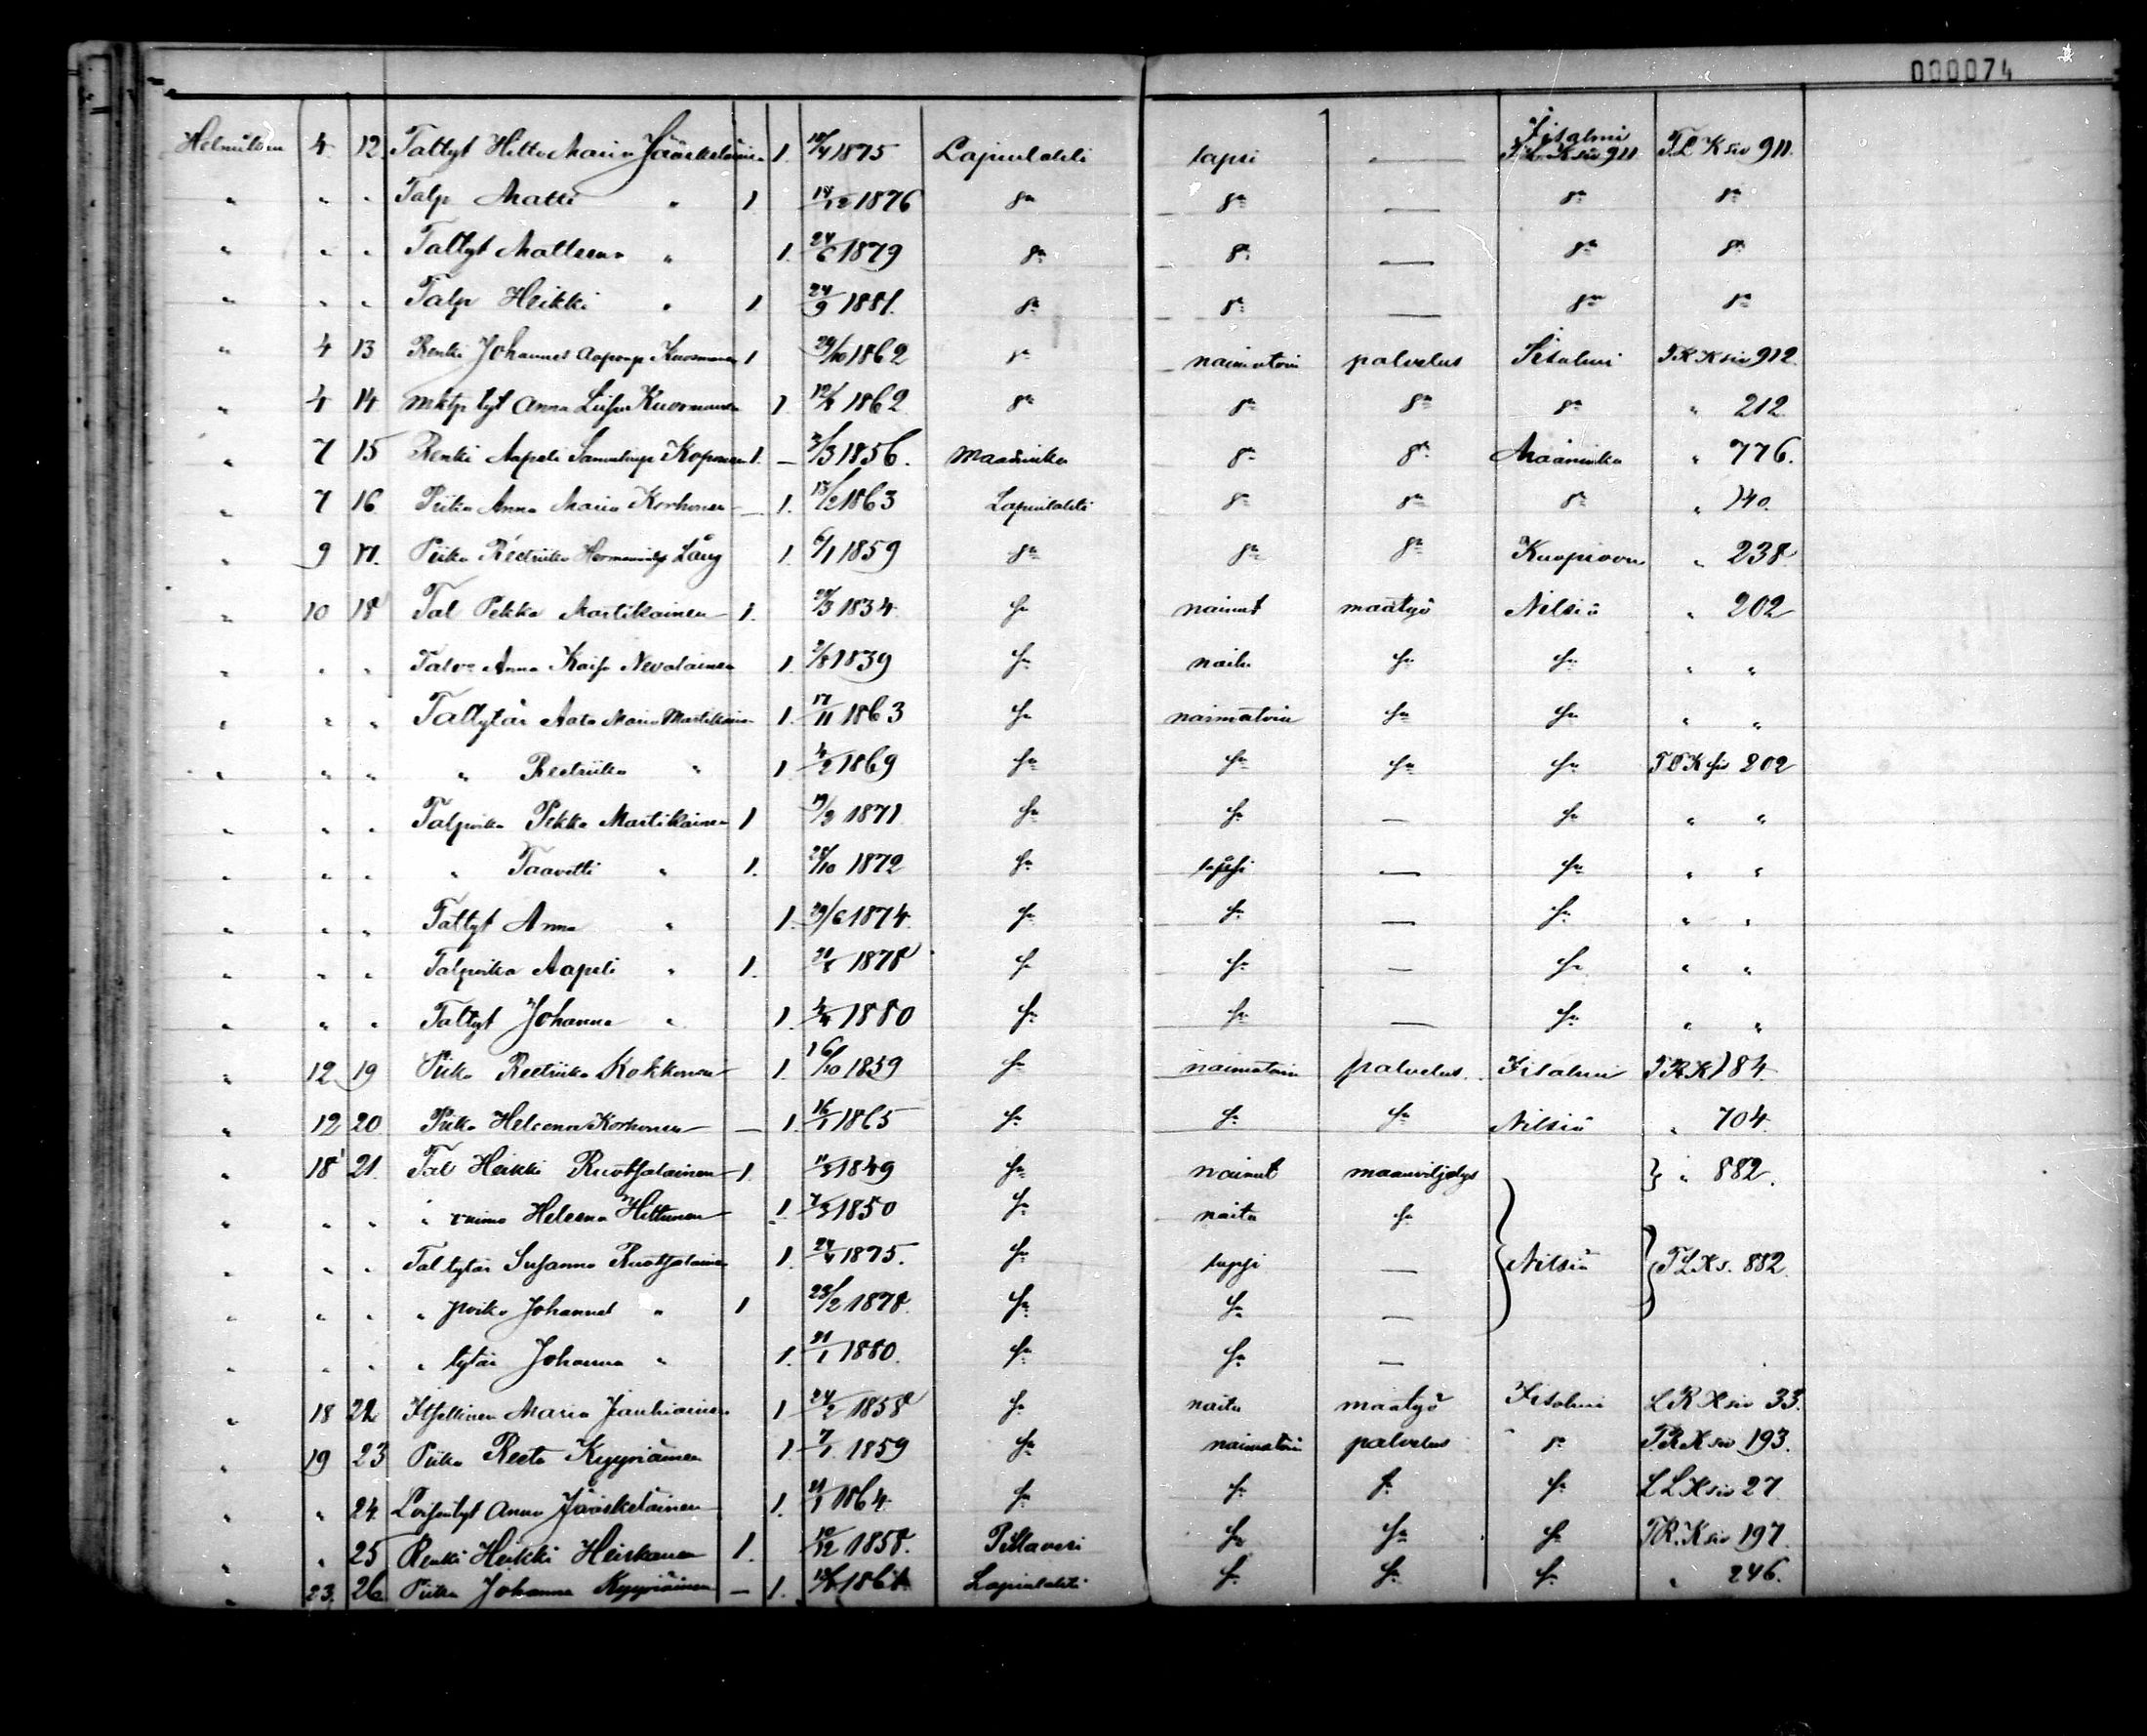 000074
Helmikuu 4. 12. Taltyt Hilta Maria Jääskeläinen 1. 18/4 1875 Lapinlahti lapsi — Iisalmi T.L.Ksiv 911 T.L Ksiv 911.
" " " Talp Matti " 1 18/12 1876 sa sa — sa sa
" " " Taltyt Matleena " 1. 24/6 1879 sa sa — sa sa
" " " Talp Heikki " 1 24/9 1881. sa sa — sa sa
" 4 13 Renki Johannes Aaponp Kuosmanen 1 24/10 1862 sa naimatoin palvelus Iisalmi T R Ksiv 912.
" 4 14 mktp tyt Anna Liisa Kuosmanen 1 1862 sa sa sa sa " 212
" 7 15 Renki Aapeli Koponen 1. — 3/3 1856. Maaninka sa sa Maaninka " 776.
" 7 16 Piika Anna Maria Korhonen — 1. 13/2 1863 Lapinlahti sa sa sa " 140.
" 9 17. Piika Reetriika Hermanint Lång 1. 6/1 1859 sa sa sa Kuopioon " 238
" 10 18 Tal Pekka Martikainen 1. /3 1834 sa nainut maatyö Nilsiä " 202
" " " Talv Anna Kaisa Nevalainen 1. /8 1839 sa naitu sa sa " "
" " " Taltytär Aata Maria Martikainen 1. 17/11 1863 sa naimatoin sa sa " "
" " " " Reetriika " 1 4/2 1869 sa sa sa sa 202
" " " Talpoika Pekka Martikainen 1 19/3 1871 sa sa — sa " "
" " " " Taavetti " 1. 28/10 1872 sa lapsi — sa " "
" " " Taltyt Anna " 1. 29/6 1874. sa sa — sa " "
" " " Talpoika Aapeli " 1. 1878 sa sa — sa " "
" " " Taltyt Johanna " 1. 1880 sa sa — sa " "
" 12 19 Piika Reetriika Kokkonen 1. 16/10 1859 sa naimatoin palvelus. Iisalmi T R K 184.
" 12 20 Piika Heleena Korhonen — 1. 16/1 1865 sa sa sa Nilsiä " 704.
" 18 21. Tal Heikki Ruotsalainen 1. 1849 sa nainut maanviljelys } " 882.
" " " " vaimo Heleena Hiltunen 1. 1850 sa naitu sa
" " " Tal tytär Susanna Ruotsalainen 1. 1875. sa lapsi — } Nilsiä } T L K s. 882.
" " " " poika Johannes " 1 23/2 1878. sa sa —
" " " " tytär Johanna " 1. 21/1 1880. sa sa —
" 18 22 Itsellinen Maria Jauhiainen 1 24/2 1858 sa naitu maatyö Iisalmi L R Ksiv 33.
" 19 23 Piika Reeta Kyyriäinen 1. 7/1 1859 sa naimatoin palvelus sa T R K siv 193.
" " 24. Loisentyt Anna Jääskeläinen 1. 1864 sa sa sa sa L L Ksiv 27
" " 25 Renki Heikki Heiskanen 1. 10/12 1858. Pielavesi sa sa sa T R. K siv 197.
" 23. 26 Piika Johanna Kyyriäinen — 1. Lapinlahti sa sa sa " 246.